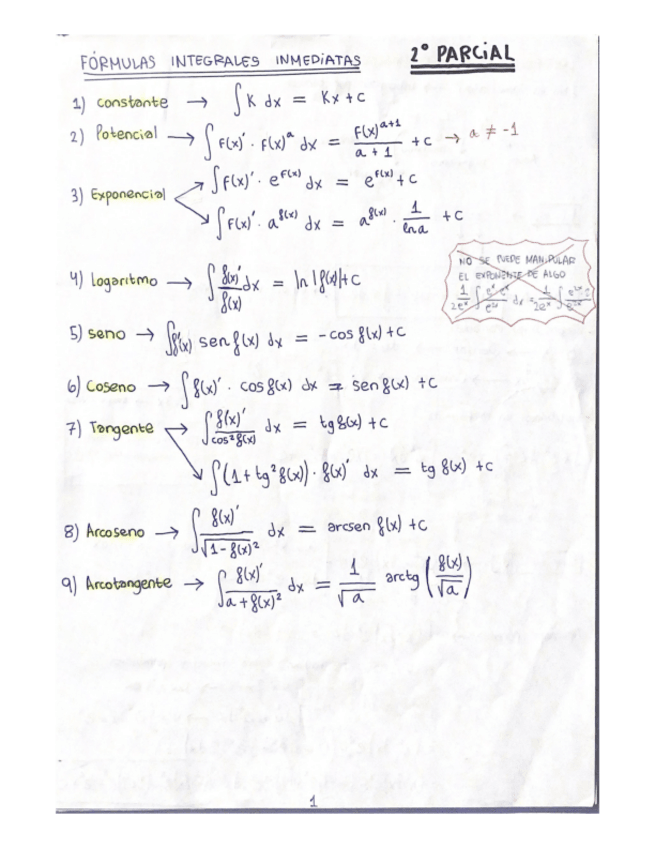 FÓRMULAS INTEGRALES INMEDIATAS 2º PARCIAL
1) constante → ∫ K dx = Kx + C
2) Potencial → ∫ F(x)' · F(x)^a dx = F(x)^(a+1) / (a + 1) + C → a ≠ -1
3) Exponencial → ∫ F(x)' · e^(F(x)) dx = e^(F(x)) + C
→ ∫ F(x)' · a^(f(x)) dx = a^(f(x)) · 1/(ln a) + C
NO SE PUEDE MANIPULAR
EL EXPONENTE DE ALGO
4) logaritmo → ∫ f(x)'/f(x) dx = ln |f(x)| + C
5) seno → ∫ f'(x) sen f(x) dx = -cos f(x) + C
6) Coseno → ∫ f(x)' · cos f(x) dx = sen f(x) + C
7) Tangente → ∫ f(x)'/(cos² f(x)) dx = tg f(x) + C
→ ∫ (1 + tg² f(x)) · f(x)' dx = tg f(x) + C
8) Arcoseno → ∫ f(x)'/√(1 - f(x)²) dx = arcsen f(x) + C
9) Arcotangente → ∫ f(x)'/(a + f(x)²) dx = 1/√a arctg (f(x)/√a)
1